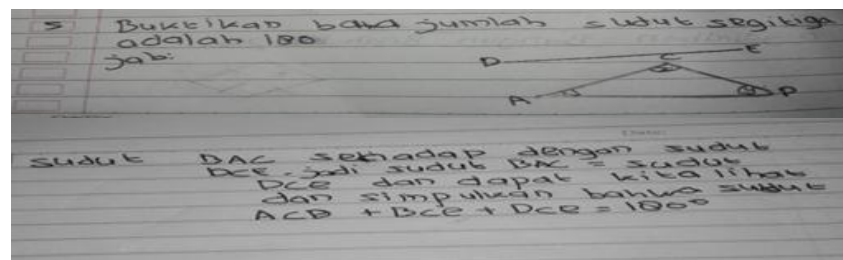 5 Buktikan bawa jumlah sudut segitiga
adalah 180
jab:
D E
C
A B
sudut BAC sehadap dengan sudut
DCE. jadi sudut BAC = sudut
DCE dan dapat kita lihat
dan simpulkan bahwa sudut
ACB + BCE + DCE = 180°